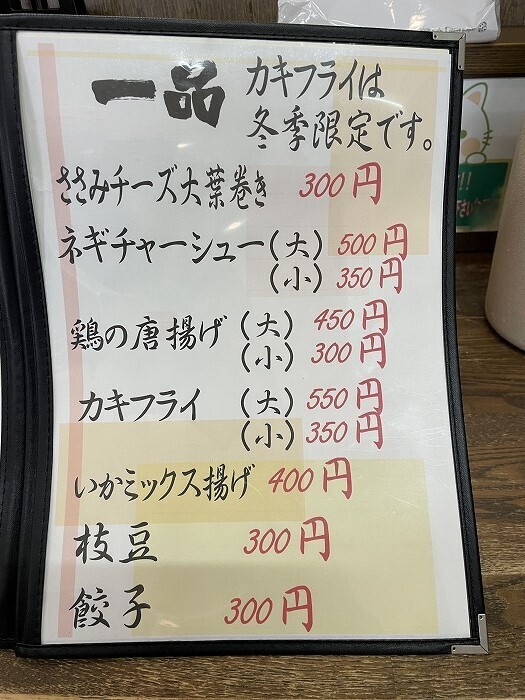 一品
カキフライは
冬季限定です。
ささみチーズ大葉巻き 300円
ネギチャーシュー(大) 500円
(小) 350円
鶏の唐揚げ (大) 450円
(小) 300円
カキフライ (大) 550円
(小) 350円
いかミックス揚げ 400円
枝豆 300円
餃子 300円